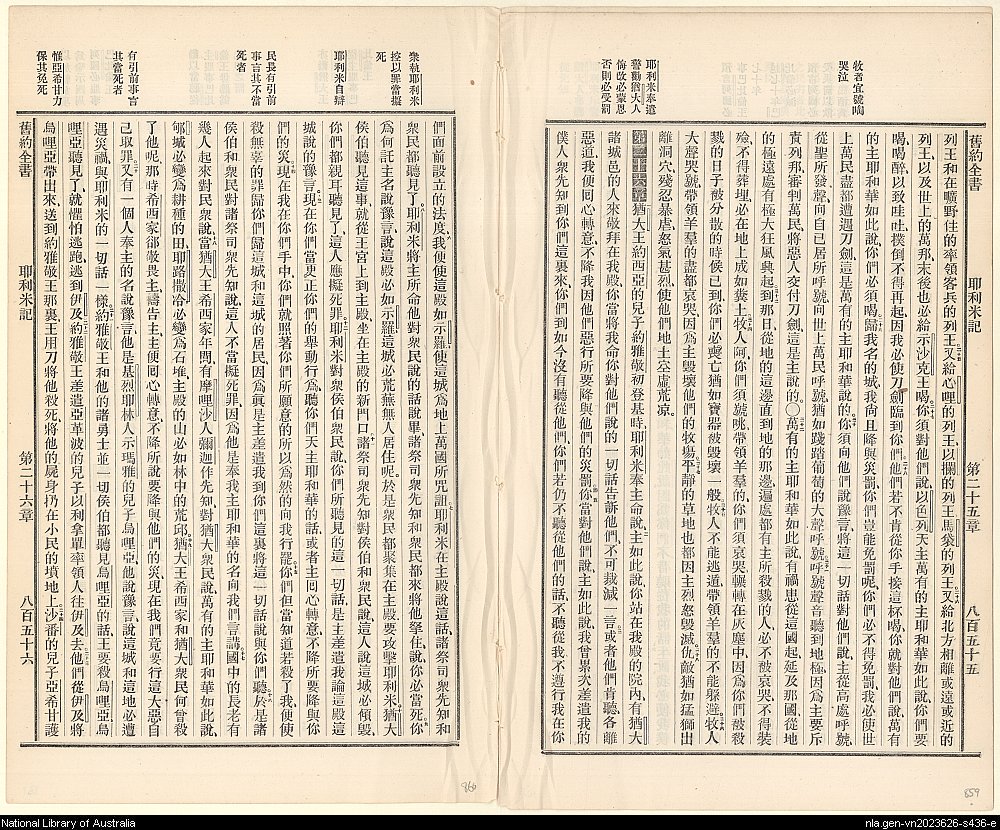 牧者宜號咷
哭泣
耶利米奉遣
警勸猶大人
悔改必蒙恩
否則必受罰
舊約全書 耶利米記 第二十五章 八百五十五
列王和在曠野住的率領客兵的列王又給心哩的列王以攔的列王馬袋的列王又給北方相離或遠或近的
列王以及世上的萬邦末後也必給示沙克王喝你須對他們說以色列天主萬有的主耶和華如此說你們要
喝喝醉以致哇吐撲倒不得再起因我必使刀劍臨到你們他們若不肯從你手接這杯喝你就對他們說萬有
的主耶和華如此說你們必須喝歸我名的城我尚且降與災罰你們豈能免罰呢你們必不得免罰我必使世
上萬民盡都遭遇刀劍這是萬有的主耶和華說的你須向他們說豫言將這一切話對他們說主從高處呼號
從聖所發聲向自己居所呼號向世上萬民呼號猶如踐踏葡萄的大聲呼號呼號聲音聽到地極因為主要斥
責列邦審判萬民將惡人交付刀劍這是主說的〇萬有的主耶和華如此說有禍患從這國起延及那國從地
的極遠處有極大狂風興起到那日從地的這邊直到地的那邊遍處都有主所殺戮的人必不被哀哭不得裝
殮不得葬埋必在地上成如糞土牧人阿你們須號咷帶領羊羣的你們須哀哭輾轉在灰塵中因為你們被殺
戮的日子被分散的時候已到你們必喪亡猶如寶器被毀壞一般牧人不能逃遁帶領羊羣的不能躲避牧人
大聲哭號帶領羊羣的盡都哀哭因為主毀壞他們的牧場平靜的草地也都因主烈怒毀滅仇敵猶如猛獅出
離洞穴殘忍暴虐怒氣甚烈使他們地土空虛荒涼
第二十六章猶大王約西亞的兒子約雅敬初登基時耶利米奉主命說主如此說你站在我殿的院內有猶大
諸城邑的人來敬拜在我殿你當將我命你對他們說的一切話告訴他們不可裁減一言或者他們肯聽各離
惡道我便囘心轉意不降我因他們惡行所要降與他們的災罰你當對他們說主如此說我曾累次差遣我的
僕人眾先知到你們這裏來你們到如今沒有聽從他們你們若仍不聽從他們的話不聽從我不遵行我在你
眾執耶利米
控以罪當擬
死
耶利米自辯
民長有引前
事言其不當
死者
有引前事言
其當死者
惟亞希甘力
保其免死
們面前設立的法度我便使這殿如示羅使這城為地上萬國所咒詛耶利米在主殿說這話諸祭司眾先知和
眾民都聽見了耶利米將主所命他對眾民說的話說畢諸祭司眾先知和眾民都來將他拏住說你必當死你
為何託主名說豫言說這殿必如示羅這城必荒蕪無人居住呢於是眾民都聚集在主殿要攻擊耶利米猶大
侯伯聽見這事就從王宮上到主殿坐在主殿的新門口諸祭司眾先知對侯伯和眾民說這人說這城必傾毀
你們都親耳聽見了這人應擬死罪耶利米對眾侯伯眾民說你們所聽見的這一切話是主差遣我論這殿這
城說的豫言現在你們當更正你們的舉動行為聽你們天主耶和華的話或者主囘心轉意不降所要降與你
們的災現在我在你們手中你們就照著你們所願意的所以為然的向我行罷你們但當知道若殺了我便使
殺無辜的罪歸你們歸這城和這城的居民因為真是主差遣我到你們這裏將這一切話說與你們聽於是諸
侯伯和眾民對諸祭司眾先知說這人不當擬死罪因為他是奉我主耶和華的名向我們言講國中的長老有
幾人起來對民眾說當猶大王希西家年間有摩哩沙人彌迦作先知對猶大眾民說萬有的主耶和華如此說
郇城必變為耕種的田耶路撒冷必變為石堆主殿的山必如林中的荒邱猶大王希西家和猶大眾民何曾殺
了他呢那時希西家卻敬畏主禱告主主便囘心轉意不降所說要降與他們的災現在我們竟要行這大惡自
己取罪又有一個人奉主的名說豫言他是基烈耶林人示瑪雅的兒子烏哩亞他說豫言說這城和這地必遭
遇災禍與耶利米的一切話一樣約雅敬王和他的諸勇士並一切侯伯都聽見烏哩亞的話王要殺烏哩亞烏
哩亞聽見了就懼怕逃跑逃到伊及約雅敬王差遣亞革波的兒子以利拿單率領人往伊及去他們從伊及將
烏哩亞帶出來送到約雅敬王那裏王用刀將他殺死將他的屍身扔在小民的墳地上沙番的兒子亞希甘護
舊約全書 耶利米記 第二十六章 八百五十六
866
859
National Library of Australia
nla.gen-vn2023626-s436-e